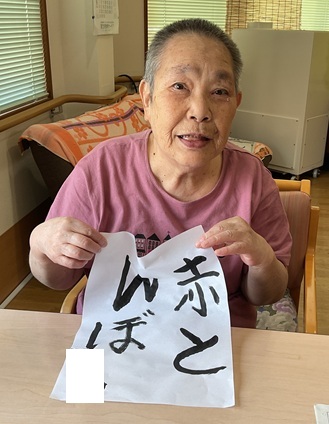 赤と
んぼ